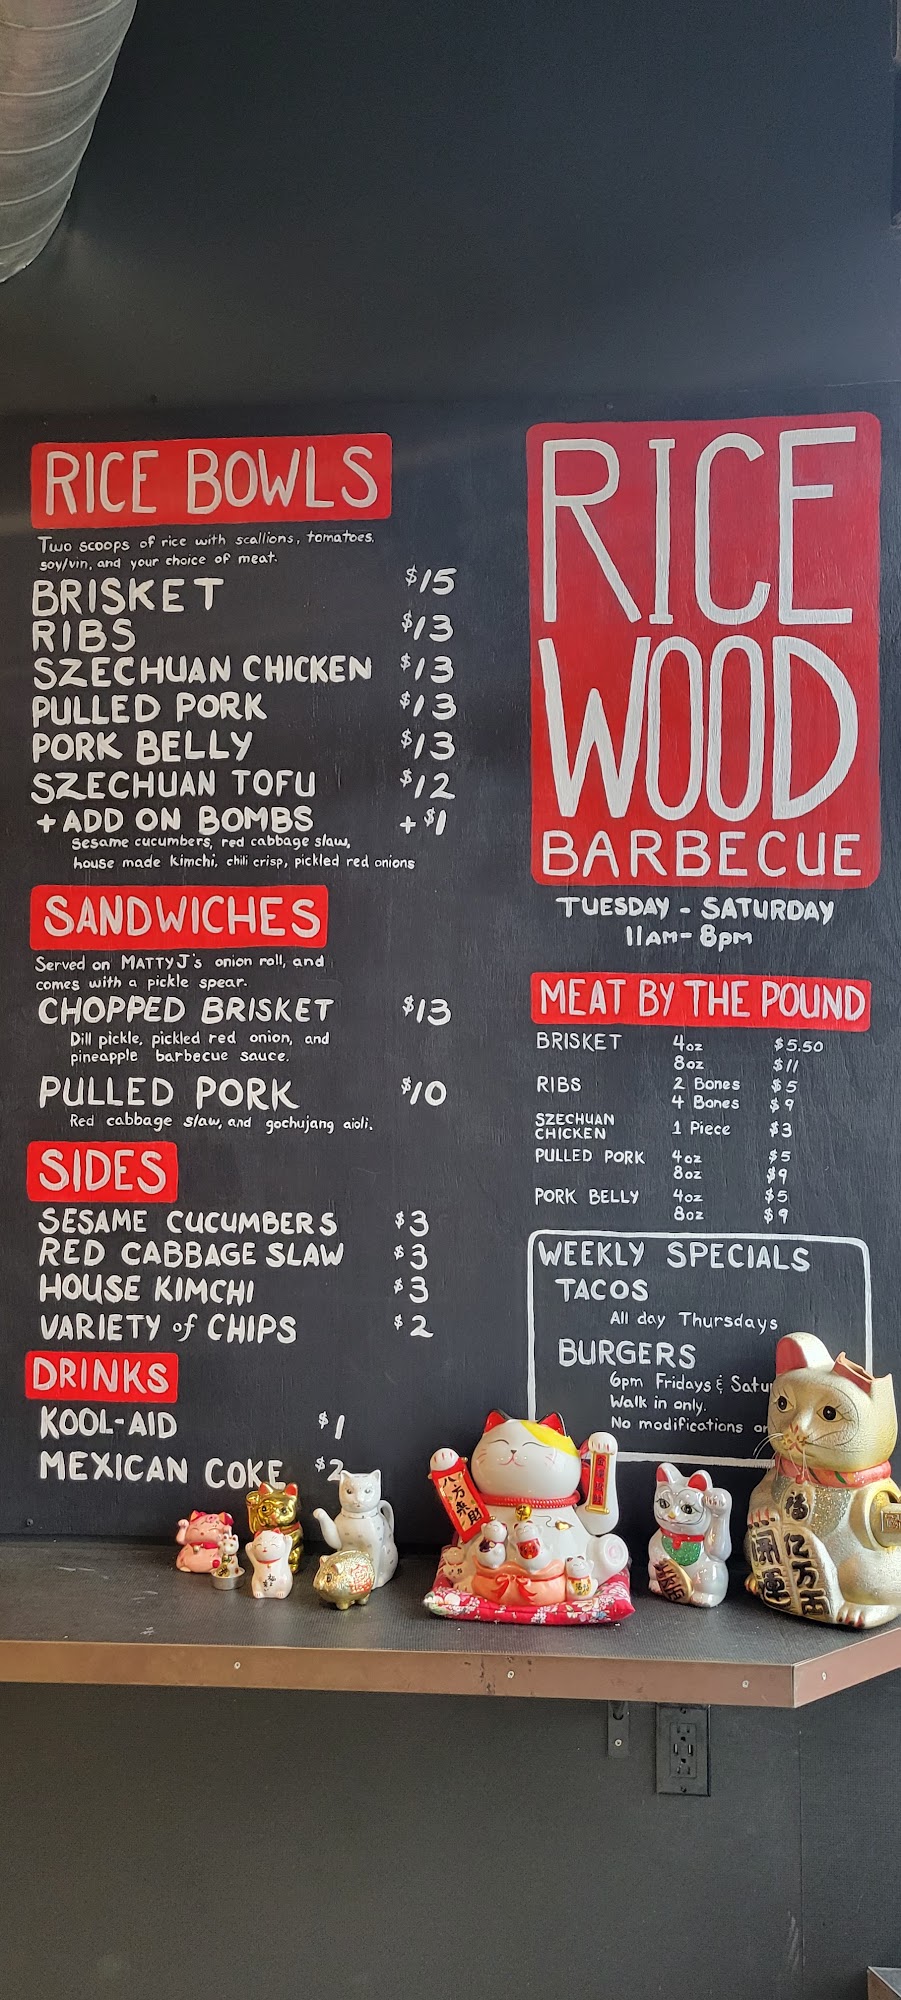 RICE BOWLS
Two scoops of rice with scallions, tomatoes,
soy/vin, and your choice of meat.
BRISKET $15
RIBS $13
SZECHUAN CHICKEN $13
PULLED PORK $13
PORK BELLY $13
SZECHUAN TOFU $12
+ ADD ON BOMBS + $1
Sesame cucumbers, red cabbage slaw,
house made kimchi, chili crisp, pickled red onions
SANDWICHES
Served on MATTYJ's onion roll, and
comes with a pickle spear.
CHOPPED BRISKET $13
Dill pickle, pickled red onion, and
pineapple barbecue sauce.
PULLED PORK $10
Red cabbage slaw, and gochujang aioli.
SIDES
SESAME CUCUMBERS $3
RED CABBAGE SLAW $3
HOUSE KIMCHI $3
VARIETY of CHIPS $2
DRINKS
KOOL-AID $1
MEXICAN COKE $2
RICE
WOOD
BARBECUE
TUESDAY - SATURDAY
11AM- 8pm
MEAT BY THE POUND
BRISKET 4oz $5.50
8oz $11
RIBS 2 Bones $5
4 Bones $9
SZECHUAN
CHICKEN 1 Piece $3
PULLED PORK 4oz $5
8oz $9
PORK BELLY 4oz $5
8oz $9
WEEKLY SPECIALS
TACOS
All day Thursdays
BURGERS
6pm Fridays & Satu
Walk in only.
No modifications or
八方来財
開運
福
亿万両